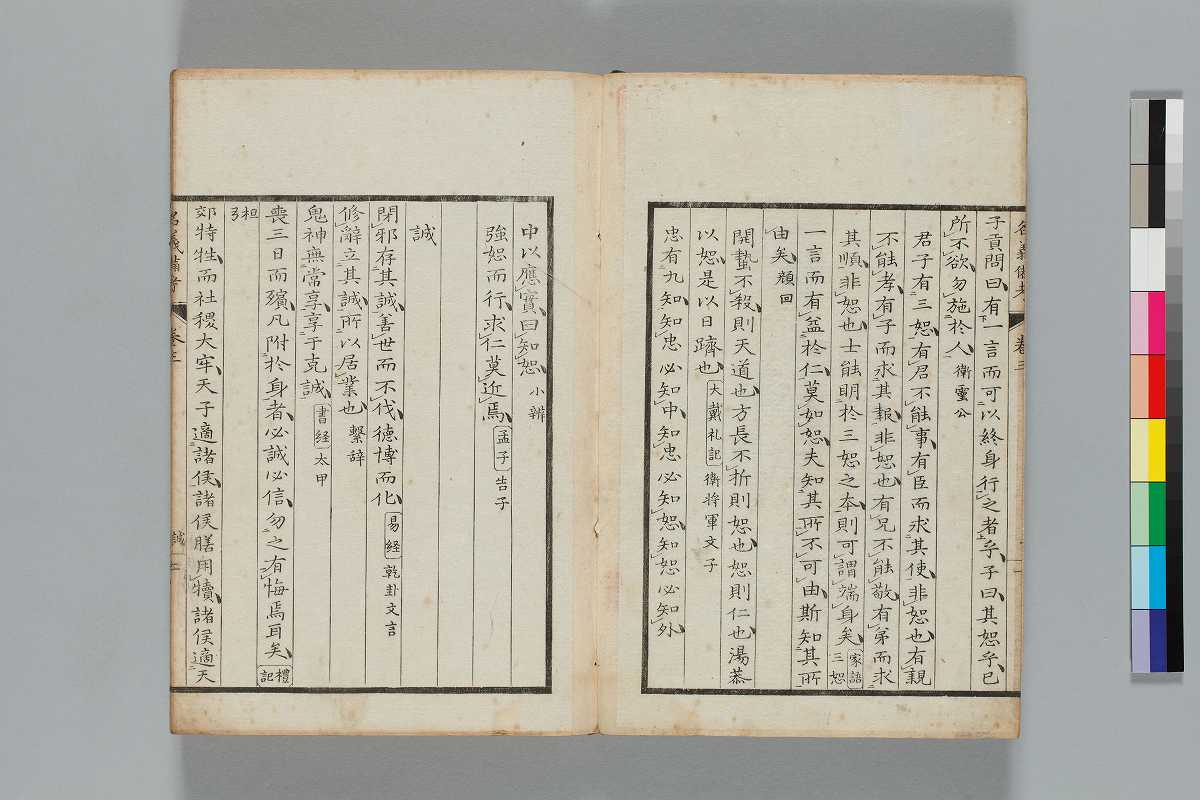 子貢問曰有一言而可以終身行之者乎子曰其恕乎己
所不欲勿施於人衛靈公
君子有三恕有君不能事有臣而求其使非恕也有親
不能孝有子而求其報非恕也有兄不能敬有弟而求
其順非恕也士能明於三恕之本則可謂端身矣家語三恕
一言而有益於仁莫如恕夫知其所不可由斯知其所
由矣顔回
開蟄不殺則天道也方長不折則恕也恕則仁也湯恭
以恕是以日躋也大戴礼記衛将軍文子
忠有九知知忠必知中知忠必知恕知恕必知外
中以應實曰知恕小辨
強恕而行求仁莫近焉孟子告子
誠
閑邪存其誠善世而不伐徳博而化易経乾卦文言
修辭立其誠所以居業也繋辞
鬼神無常享享于克誠書経太甲
喪三日而殯凡附於身者必誠必信勿之有悔焉耳矣禮記
檀弓
郊特牲而社稷大牢天子適諸侯諸侯膳用犢諸侯適天
卷三
誠
二